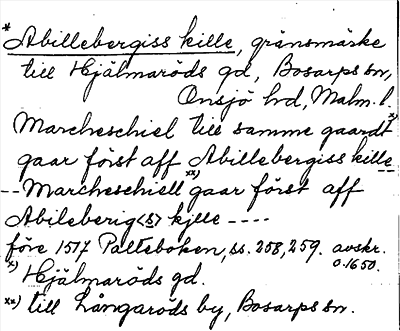 * Abillebergiss kille, gränsmärke
till Hjälmaröds gd, Bosarps sn,
Onsjö hd, Malm. l.
Marcheschiel till samme gaardt x)
gaar först aff Abillebergiss kille
-- Marcheschiell xx) gaar först aff
Abileberig<s> kjlle ----
före 1517 Palteboken, ss. 258, 259. avskr.
o. 1650.
x) Hjälmaröds gd.
xx) till Långaröds by, Bosarps sn.